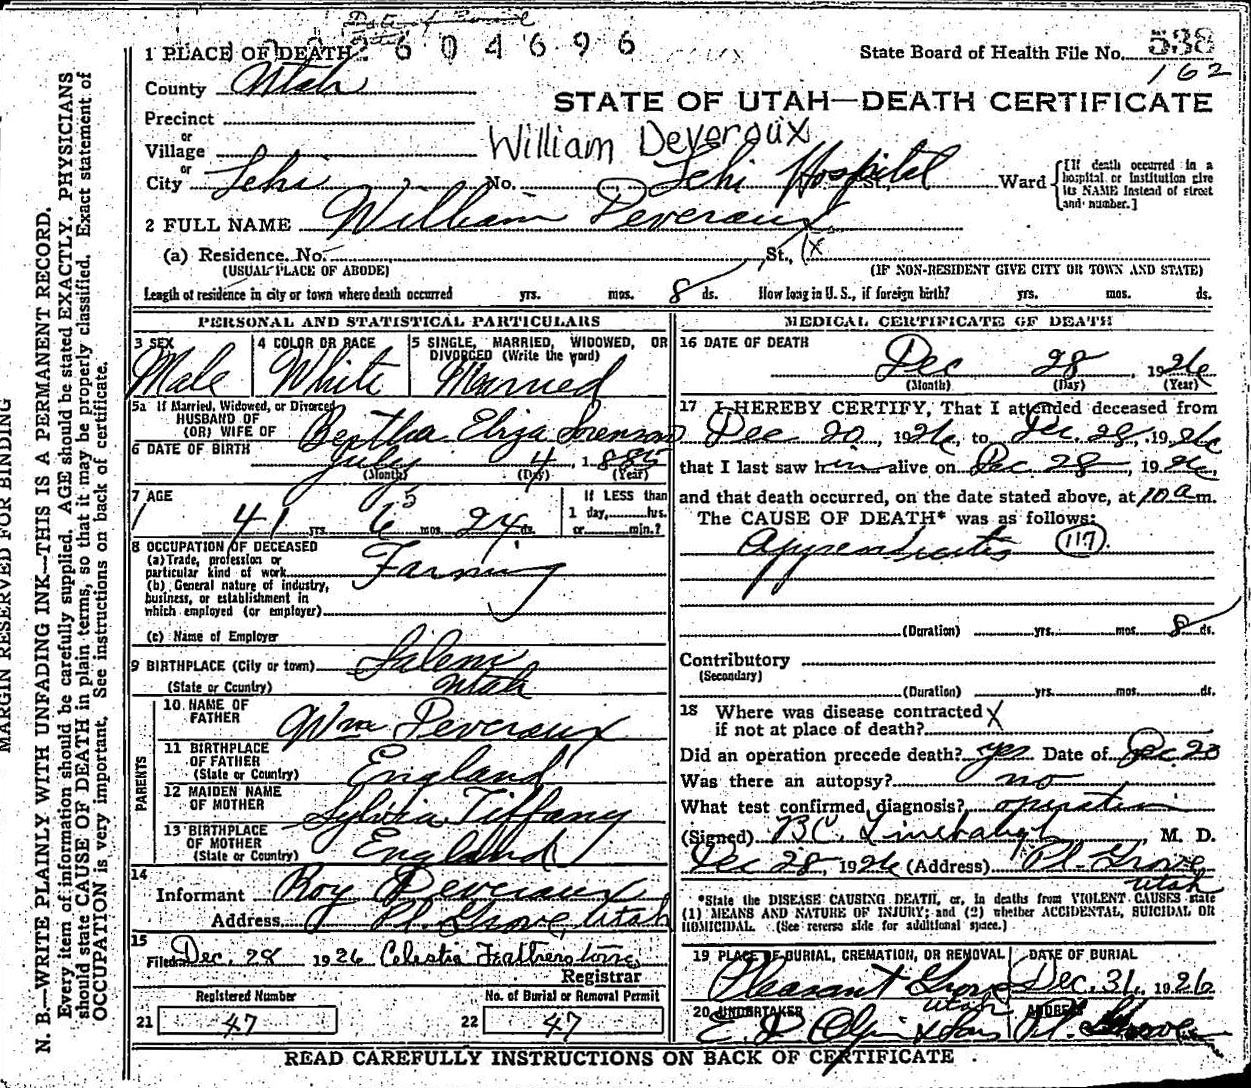 Date of Burial
2604696
1 PLACE OF DEATH
State Board of Health File No. 538
162
County Utah
STATE OF UTAH—DEATH CERTIFICATE
Precinct
or
Village
William Deveraux
or
City Lehi No. Lehi Hospital St., Ward
[If death occurred in a hospital or institution give its NAME instead of street and number.]
2 FULL NAME William Deveraux
(a) Residence. No. St., X
(USUAL PLACE OF ABODE) (IF NON-RESIDENT GIVE CITY OR TOWN AND STATE)
Length of residence in city or town where death occurred yrs. mos. 8 ds. How long in U. S., if foreign birth? yrs. mos. ds.
PERSONAL AND STATISTICAL PARTICULARS
3 SEX 4 COLOR OR RACE 5 SINGLE, MARRIED, WIDOWED, OR DIVORCED (Write the word)
Male White Married
5a If Married, Widowed, or Divorced
HUSBAND OF
(OR) WIFE OF Bertha Eliza Sorenson
6 DATE OF BIRTH July 4, 1885
(Month) (Day) (Year)
7 AGE
41 yrs. 6 5 mos. 24 ds.
If LESS than
1 day,......hrs.
or......min.?
8 OCCUPATION OF DECEASED
(a) Trade, profession or
particular kind of work Farming
(b) General nature of industry,
business, or establishment in
which employed (or employer)
(c) Name of Employer
9 BIRTHPLACE (City or town) Salem
(State or Country) Utah
PARENTS
10 NAME OF
FATHER Wm Deveraux
11 BIRTHPLACE
OF FATHER
(State or Country) England
12 MAIDEN NAME
OF MOTHER Sylvia Tiffany
13 BIRTHPLACE
OF MOTHER
(State or Country) England
14
Informant Roy Deveraux
Address Pl. Grove, Utah
15
Filed Dec. 28 1926 Celestia Featherstone,
Registrar
Registered Number No. of Burial or Removal Permit
21 47 22 47
MEDICAL CERTIFICATE OF DEATH
16 DATE OF DEATH
Dec 28, 1926
(Month) (Day) (Year)
17 I HEREBY CERTIFY, That I attended deceased from
Dec 20, 1926, to Dec. 28, 1926
that I last saw him alive on Dec 28, 1926,
and that death occurred, on the date stated above, at 10 a m.
The CAUSE OF DEATH* was as follows:
Appendicitis (117)
(Duration) yrs. mos. 8 ds.
Contributory
(Secondary)
(Duration) yrs. mos. ds.
18 Where was disease contracted X
if not at place of death?
Did an operation precede death? yes Date of Dec 20
Was there an autopsy? no
What test confirmed diagnosis? operation
(Signed) B.C. Linebaugh M. D.
Dec 28, 1926 (Address) Pl. Grove
Utah
*State the DISEASE CAUSING DEATH, or, in deaths from VIOLENT CAUSES state
(1) MEANS AND NATURE OF INJURY; and (2) whether ACCIDENTAL, SUICIDAL OR
HOMICIDAL. (See reverse side for additional space.)
19 PLACE OF BURIAL, CREMATION, OR REMOVAL DATE OF BURIAL
Pleasant Grove Dec. 31, 1926
Utah
20 UNDERTAKER ADDRESS
Pl. Grove
READ CAREFULLY INSTRUCTIONS ON BACK OF CERTIFICATE
MARGIN RESERVED FOR BINDING
N. B.—WRITE PLAINLY WITH UNFADING INK—THIS IS A PERMANENT RECORD.
Every item of information should be carefully supplied. AGE should be stated EXACTLY. PHYSICIANS
should state CAUSE OF DEATH in plain terms, so that it may be properly classified. Exact statement of
OCCUPATION is very important. See instructions on back of certificate.